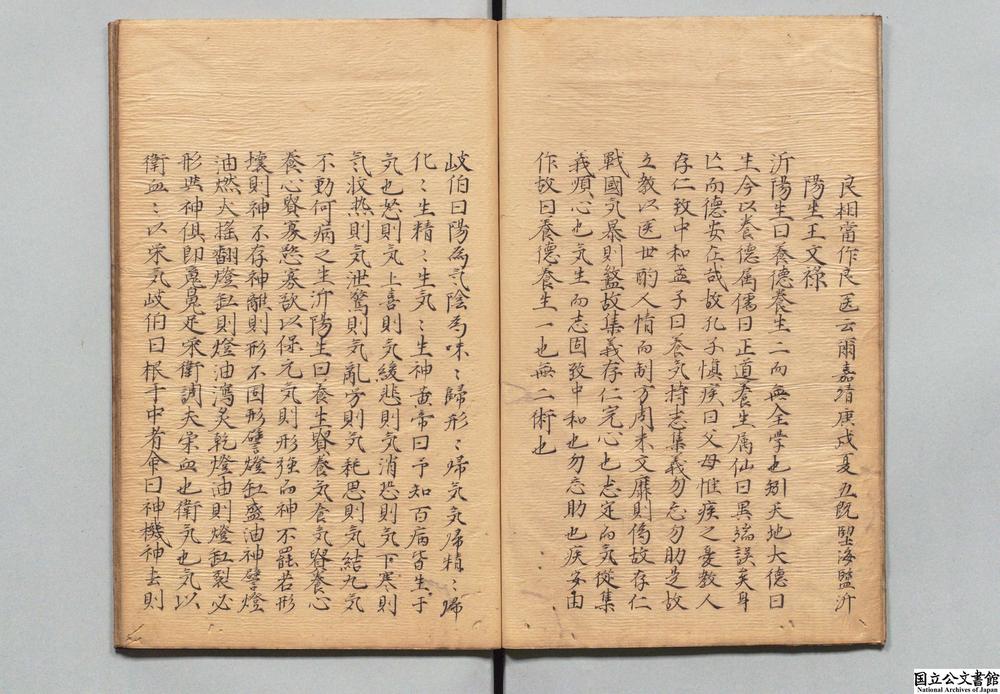 良相當作良医云爾嘉靖庚戌夏五既望海盬沂
陽生王文祿
沂陽生曰養德養生二而無全学也矧天地大德曰
生今以養德属儒曰正道養生属仙曰異端誤矣身
亡而德安在哉故孔子慎疾曰父母惟疾之憂教人
存仁致中和孟子曰養気持志集義勿忘勿助是故
立教以医世酌人情而制方周末文靡則偽故存仁
戰國気暴則盬故集義存仁完心也志定而気従集
義順心也気生而志固致中和也勿忘助也疾安由
作故曰養德養生一也無二術也
岐伯曰陽為気陰為味〻歸形〻歸気気歸精〻歸
化〻生精〻生気〻生神黄帝曰予知百病皆生于
気也怒則気上喜則気緩悲則気消恐則気下寒則
気收热則気泄驚則気亂労則気耗思則気結九気
不動何病之生沂陽生曰養生賢養気養気賢養心
養心賢寡慾寡欲以保元気則形強而神不罷若形
壊則神不存神離則形不固形譬燈缸盛油神譬燈
油燃火搖翻燈缸則燈油瀉炙乾燈油則燈缸裂必
形與神俱即蒐蒐足栄衛調夫栄血也衛気也気以
衛血〻以栄気岐伯曰根于中者命曰神機神去則
国立公文書館
National Archives of Japan